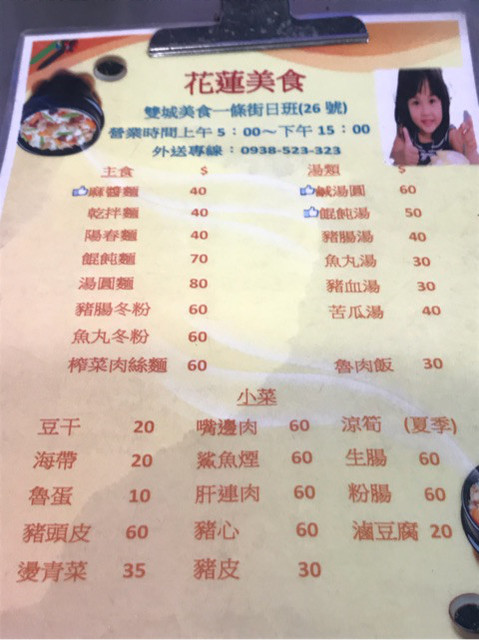 花蓮美食
雙城美食一條街日班(26 號)
營業時間上午 5：00~下午 15：00
外送專線：0938-523-323
主食 $ 湯類 $
麻醬麵 40 鹹湯圓 60
乾拌麵 40 餛飩湯 50
陽春麵 40 豬腸湯 40
餛飩麵 70 魚丸湯 30
湯圓麵 80 豬血湯 30
豬腸冬粉 60 苦瓜湯 40
魚丸冬粉 60
榨菜肉絲麵 60 魯肉飯 30
小菜
豆干 20 嘴邊肉 60 涼筍 (夏季)
海帶 20 鯊魚煙 60 生腸 60
魯蛋 10 肝連肉 60 粉腸 60
豬頭皮 60 豬心 60 滷豆腐 20
燙青菜 35 豬皮 30